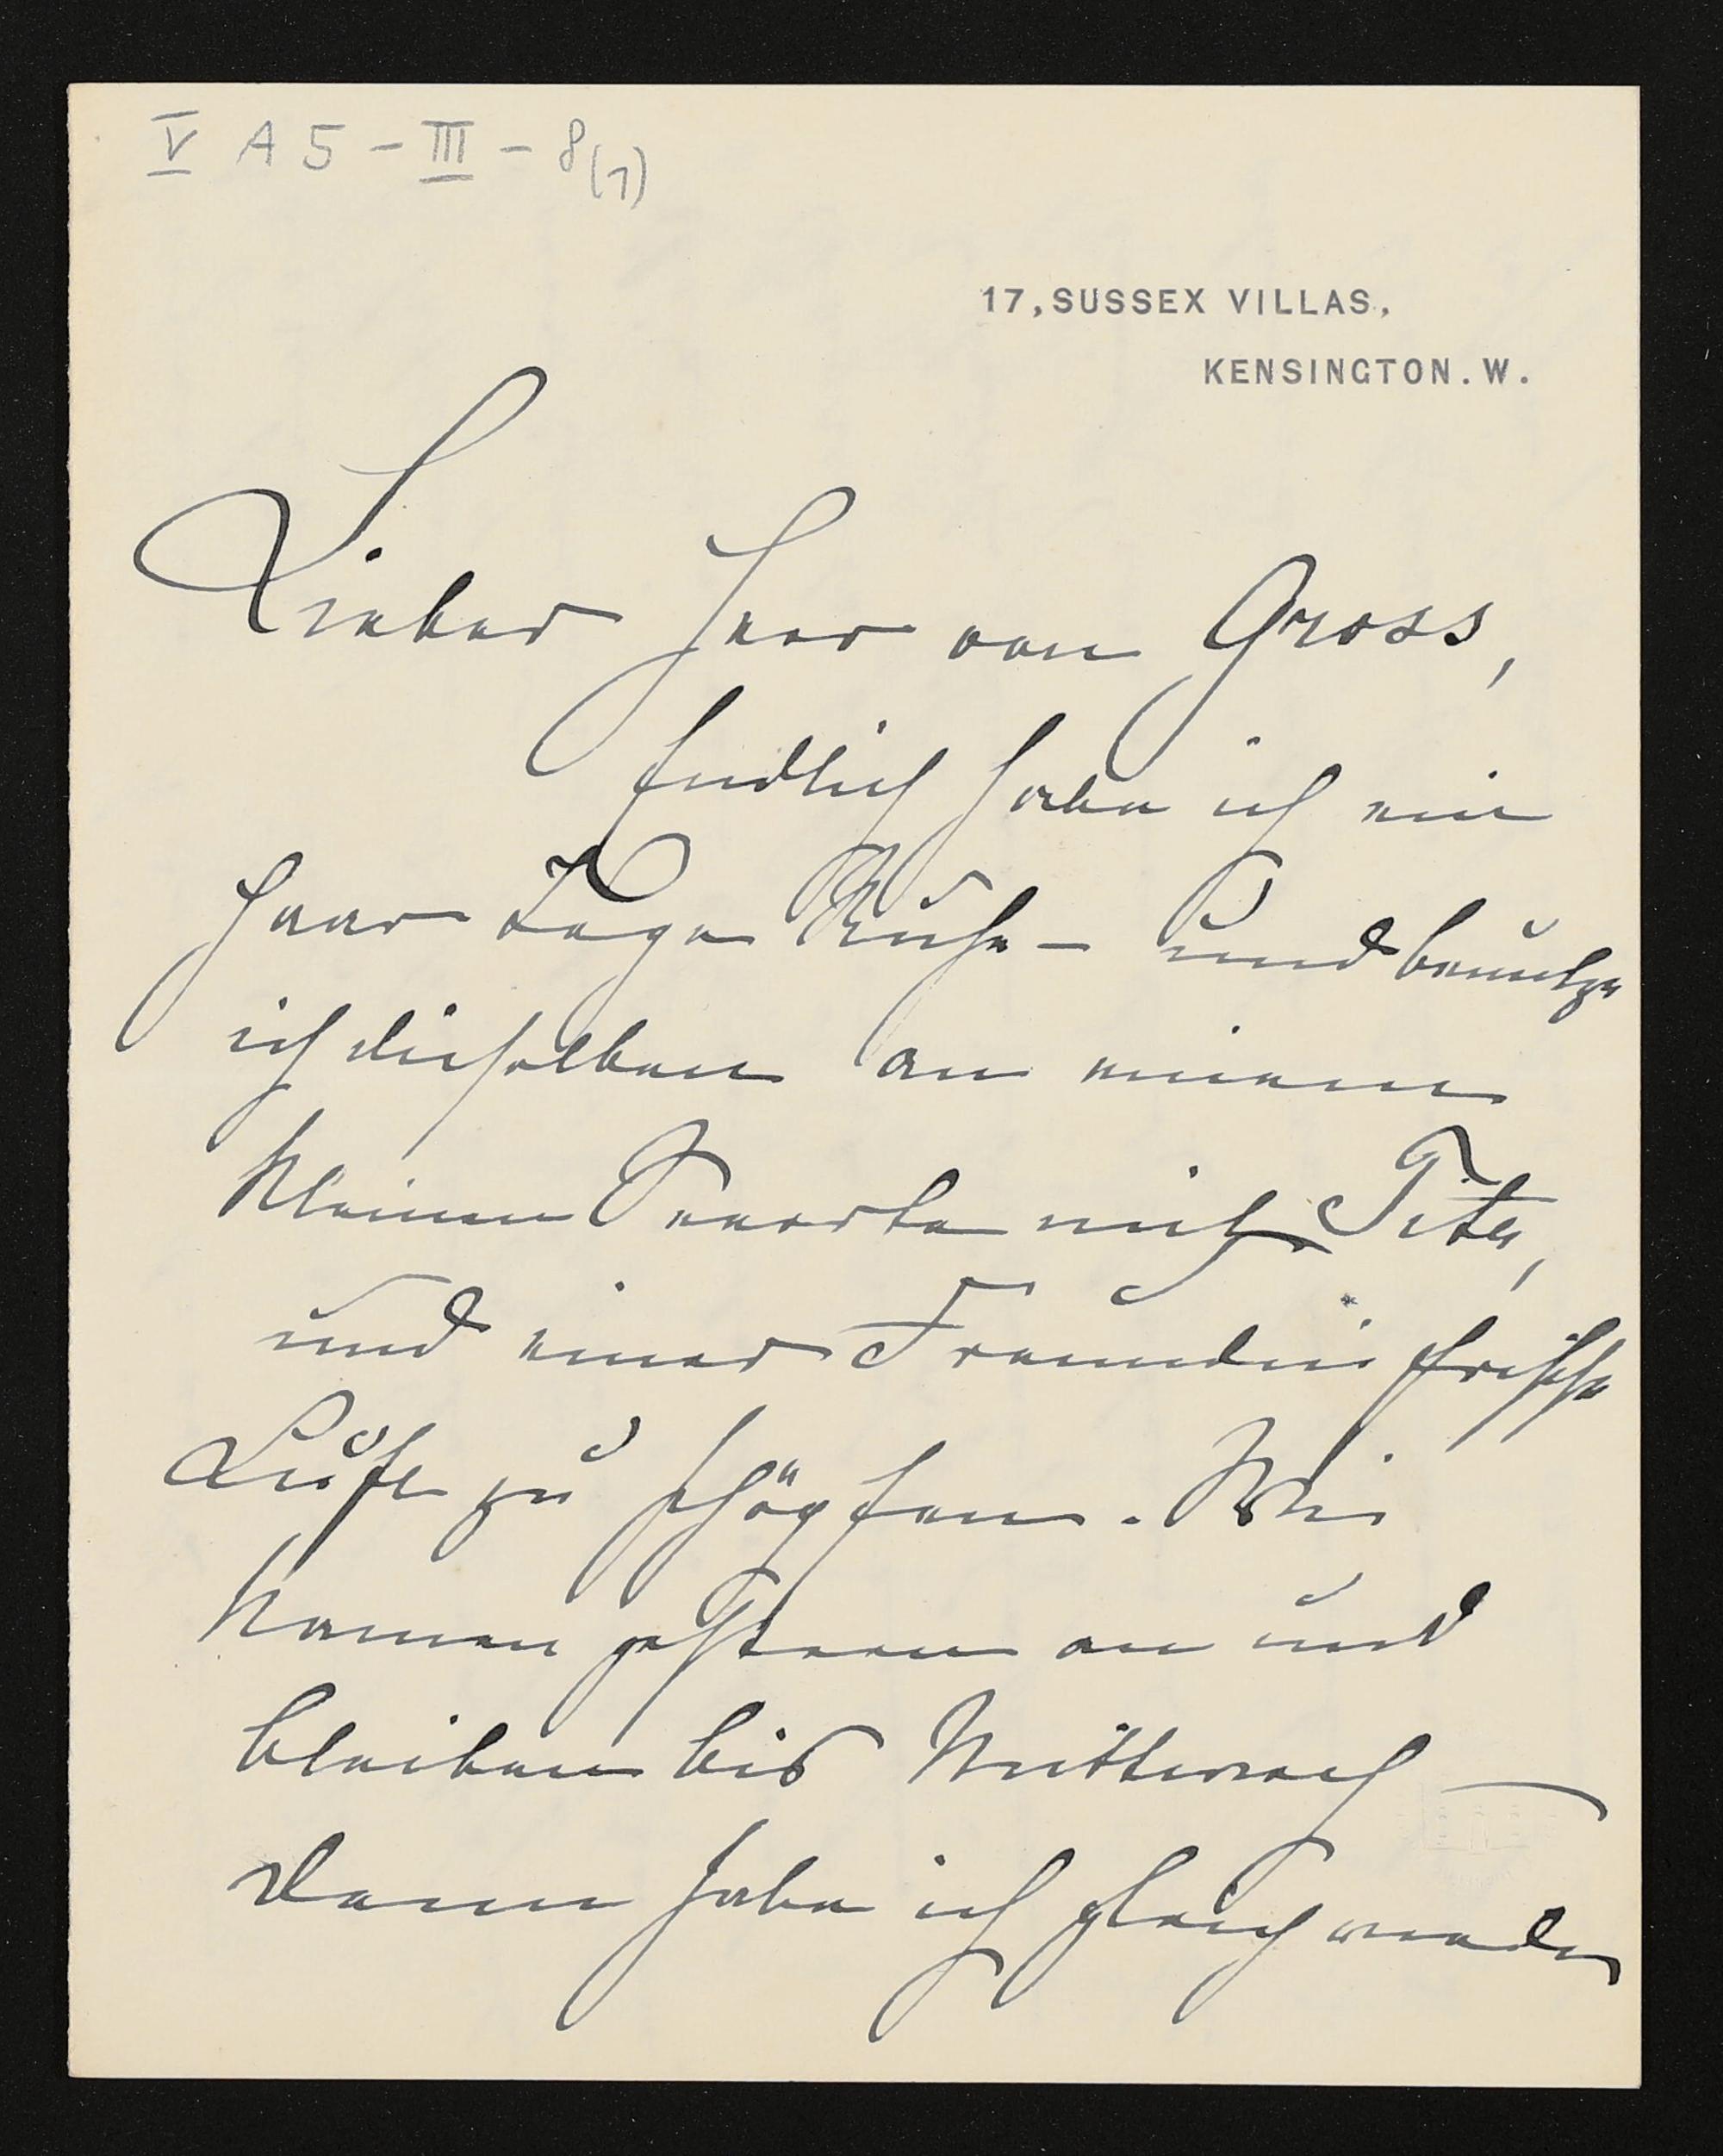 V A 5 - III - 8(1)
17, SUSSEX VILLAS,
KENSINGTON. W.
Lieber Herr von Gross,
Endlich habe ich ein
paar Tage Ruhe – und benutze
ich dieselben an einem
kleinen Seeorte mich Tita,
und einer Freundin frische
Luft zu schöpfen. Wir
kamen gestern an und
bleiben bis Mittwoch —
dann habe ich gleich wieder